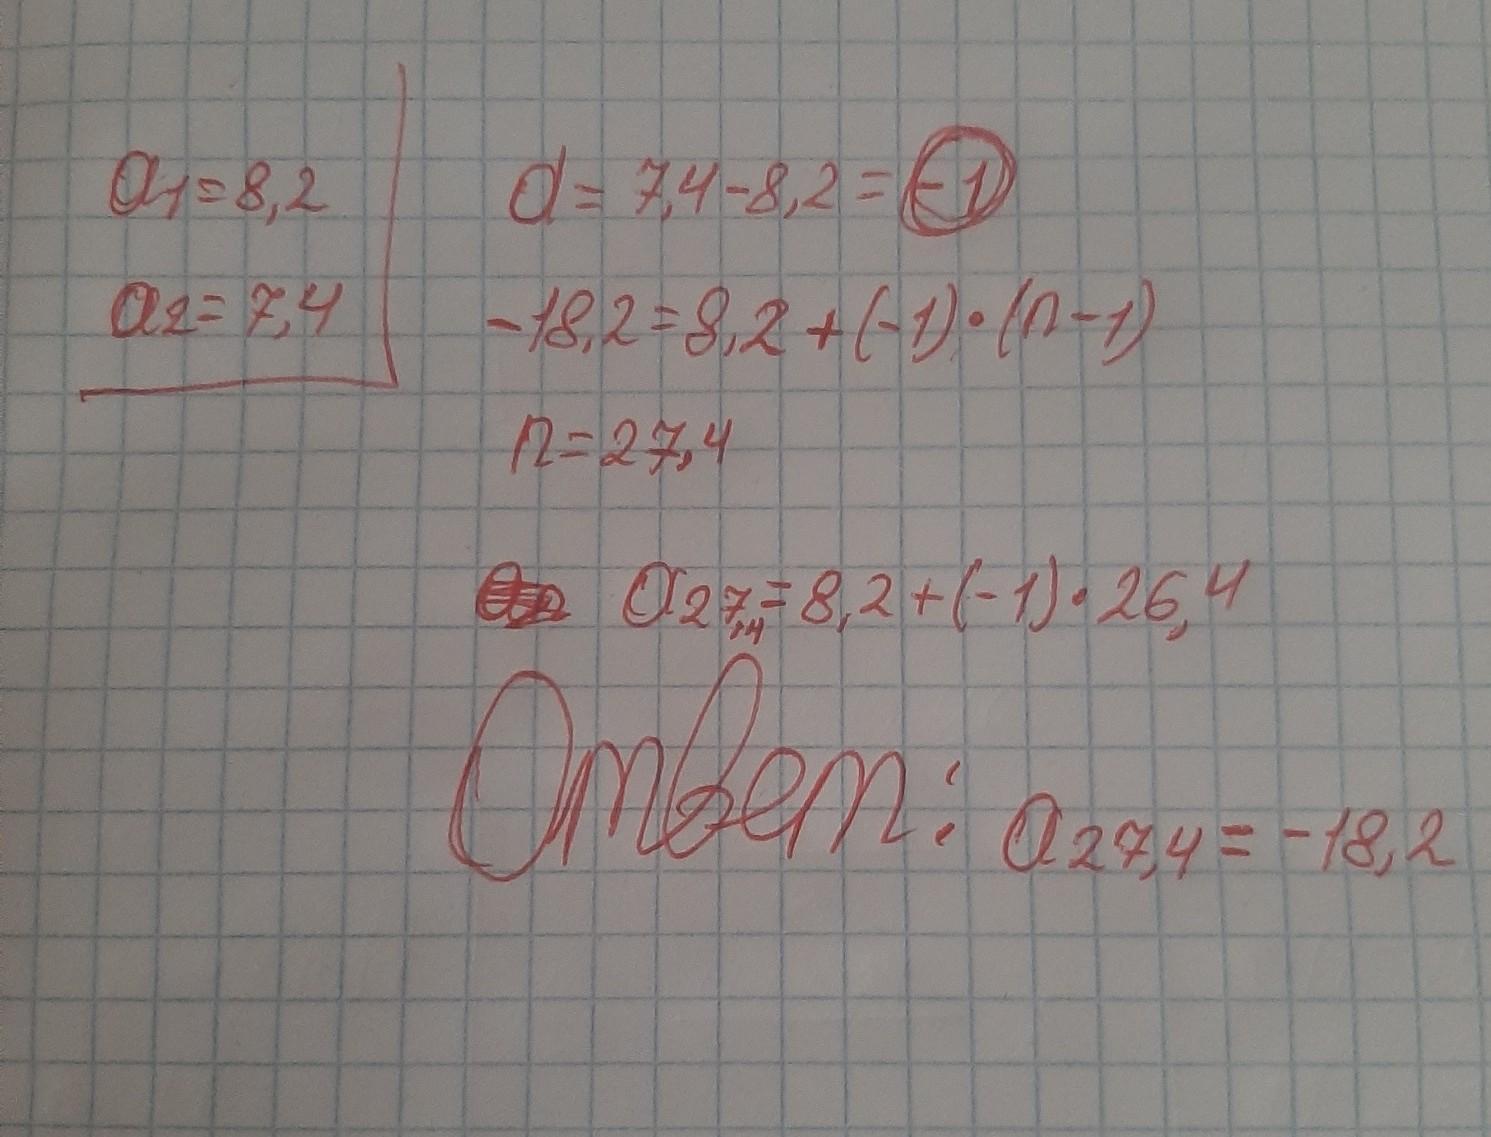 a1=8,2
a2=7,4
d=7,4-8,2=-1
-18,2=8,2+(-1)·(n-1)
n=27,4
a27,4=8,2+(-1)·26,4
Ответ: a27,4=-18,2